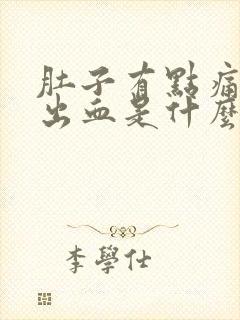 肚子有點痛
出血是什麼
李學仕